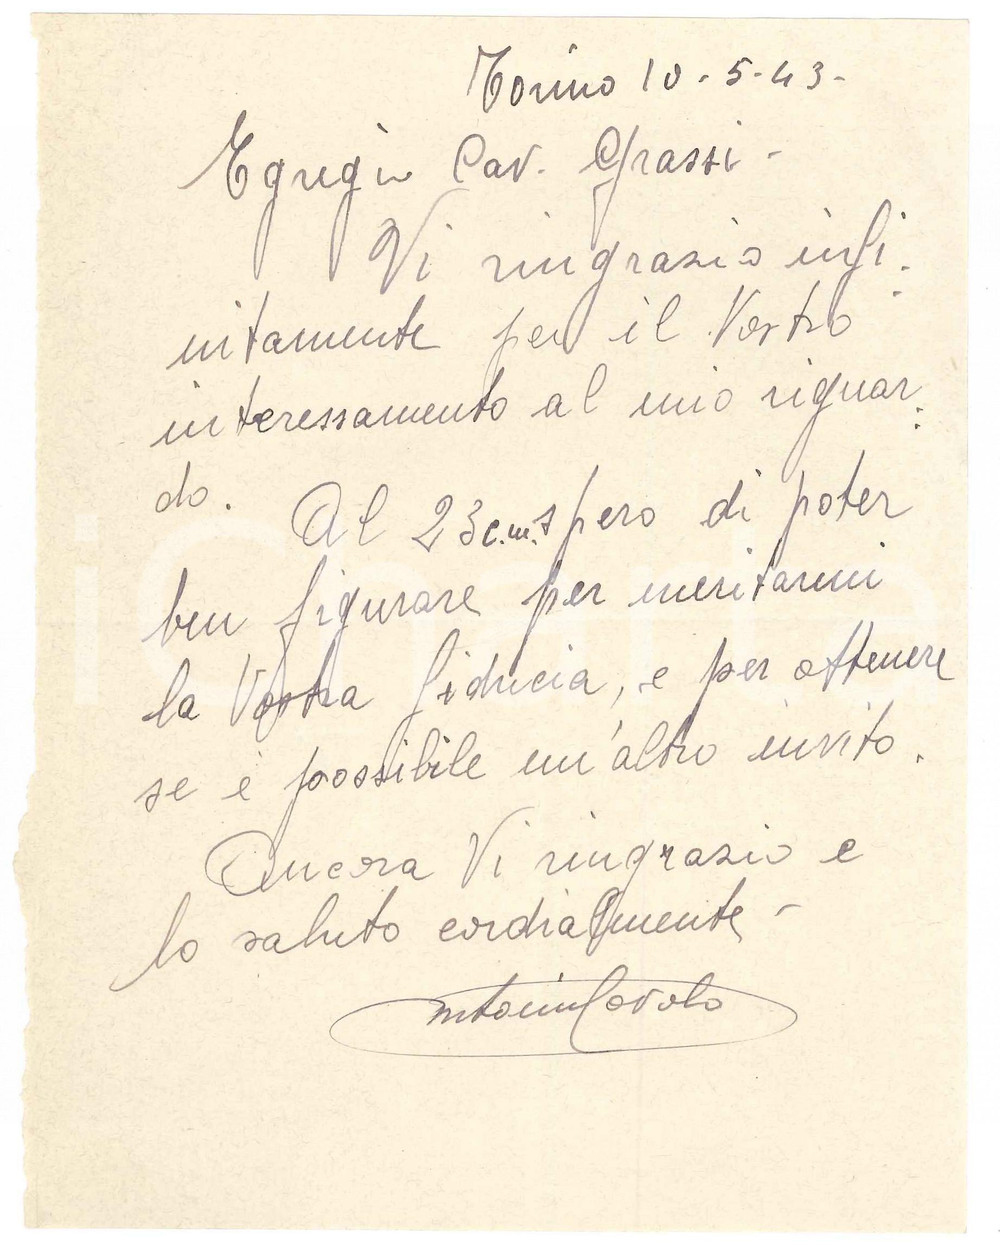 Torino 10-5-43-
Egregio Cav. Grassi -
Vi ringrazio infi-
nitamente per il Vostro
interessamento al mio riguar-
do.
Al 23 c.m. spero di poter
ben figurare per meritarmi
la Vostra fiducia, e per ottenere
se è possibile un'altro invito.
Ancora Vi ringrazio e
lo saluto cordialmente -
iCharta